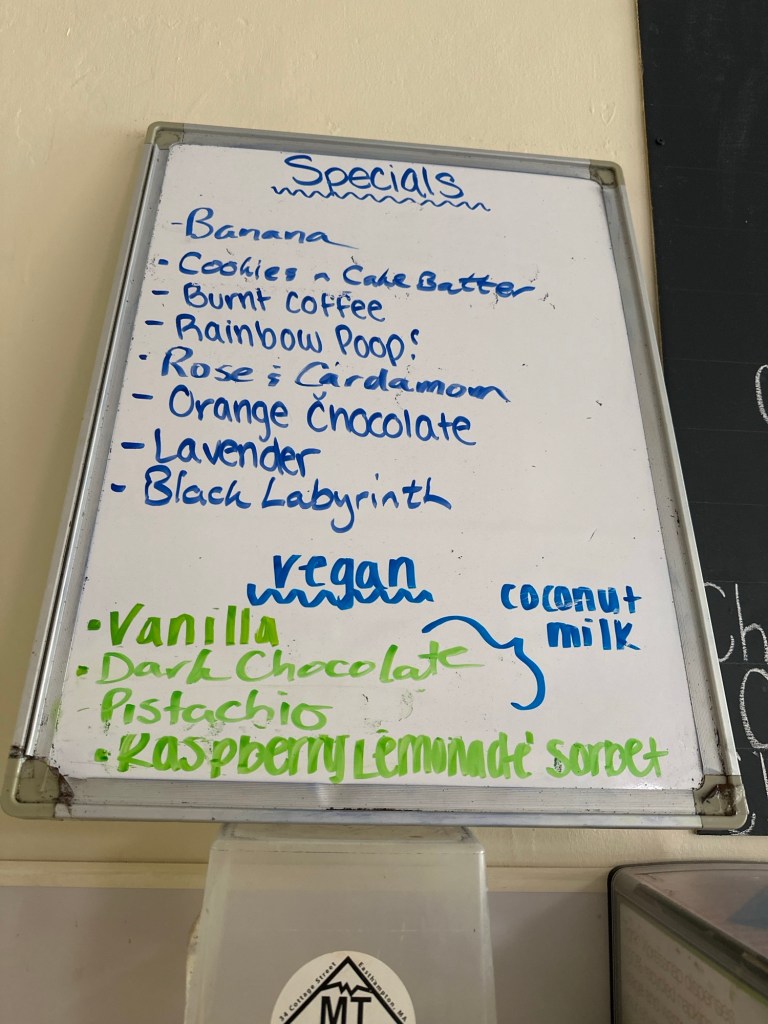 Specials
- Banana
- Cookies n Cake Batter
- Burnt Coffee
- Rainbow Poop!
- Rose & Cardamom
- Orange Chocolate
- Lavender
- Black Labyrinth
vegan
coconut
milk
• Vanilla
• Dark Chocolate
Pistachio
• Raspberry Lemonade Sorbet
34 Cottage Street
Easthampton, MA
MT
Ch